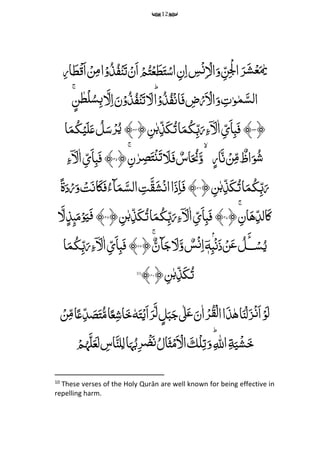 12
يٰمَعْشَرَ الْجِنِّ وَالْاِنْسِ اِنِ اسْتَطَعْتُمْ اَنْ تَنْفُذُوْا مِنْ اَقْطَارِ
السَّمٰوٰتِ وَالْاَرْضِ فَانْفُذُوْا ؕ لَا تَنْفُذُوْنَ اِلَّا بِسُلْطٰنٍ ۚ
﴿۳۳﴾ فَبِاَيِّ اٰلَآءِ رَبِّكُمَا تُكَذِّبٰنِ ﴿۳۴﴾ يُرْسَلُ عَلَيْكُمَا
شُوَاظٌ مِّنْ نَّارٍ ۙ وَّنُحَاسٌ فَلَا تَنْتَصِرٰنِ ۚ ﴿۳۵﴾ فَبِاَيِّ اٰلَآءِ
رَبِّكُمَا تُكَذِّبٰنِ ﴿۳۶﴾ فَاِذَا انْشَقَّتِ السَّمَآءُ فَكَانَتْ وَرْدَةً
كَالدِّهَانِ ۚ ﴿۳۷﴾ فَبِاَيِّ اٰلَآءِ رَبِّكُمَا تُكَذِّبٰنِ ﴿۳۸﴾ فَيَوْمَئِذٍ لَّا
يُسْـَٔلُ عَنْ ذَنْۢبِهٖۤ اِنْسٌ وَّلَا جَآنٌّ ۚ ﴿۳۹﴾ فَبِاَيِّ اٰلَآءِ رَبِّكُمَا
تُكَذِّبٰنِ ﴿۴۰﴾ 10
لَوْ اَنْزَلْنَا هٰذَا الْقُرْاٰنَ عَلٰى جَبَلٍ لَّرَاَيْتَهٗ خَاشِعًا مُّتَصَدِّعًا مِّنْ
خَشْيَةِ اللّٰهِ ؕ وَتِلْكَ الْاَمْثَالُ نَضْرِبُهَا لِلنَّاسِ لَعَلَّهُمْ
10 These verses of the Holy Qurān are well known for being effective in
repelling harm.